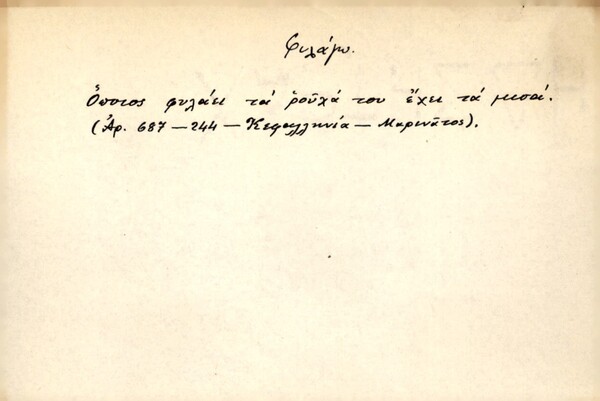 Φυλάγω.
Ὅποιος φυλάει τά ροῦχά του ἔχει τά μισά.
(Ἀρ. 687 – 244 – Κεφαλληνία – Μαρινᾶτος).